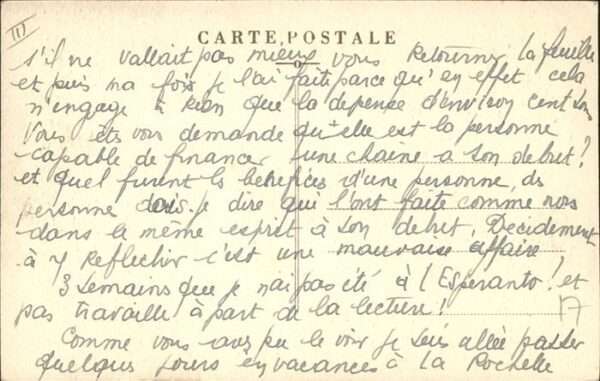 (II)
CARTE POSTALE
s'il ne vallait pas mieux vous retourner la feuille
et puis ma fois je l'ai faite parce qu'en effet cela
n'engage à rien que la depense d'environ cent sous
Vous ets vous demande qu'elle est la personne
capable de financer une chaine a son debut!
et quel furent les benefices d'une personne, ds
personne dois je dire qui l'ont faite comme nous
dans le même esprit à son debut. Decidement
à y reflechir c'est une mauvaise affaire
3 semains que je n'ai pas été à l'Esperanto! et
pas travaille à part de la lecture!
Comme vous aves pu le voir je suis allée passer
quelques jours en vacances à La Rochelle